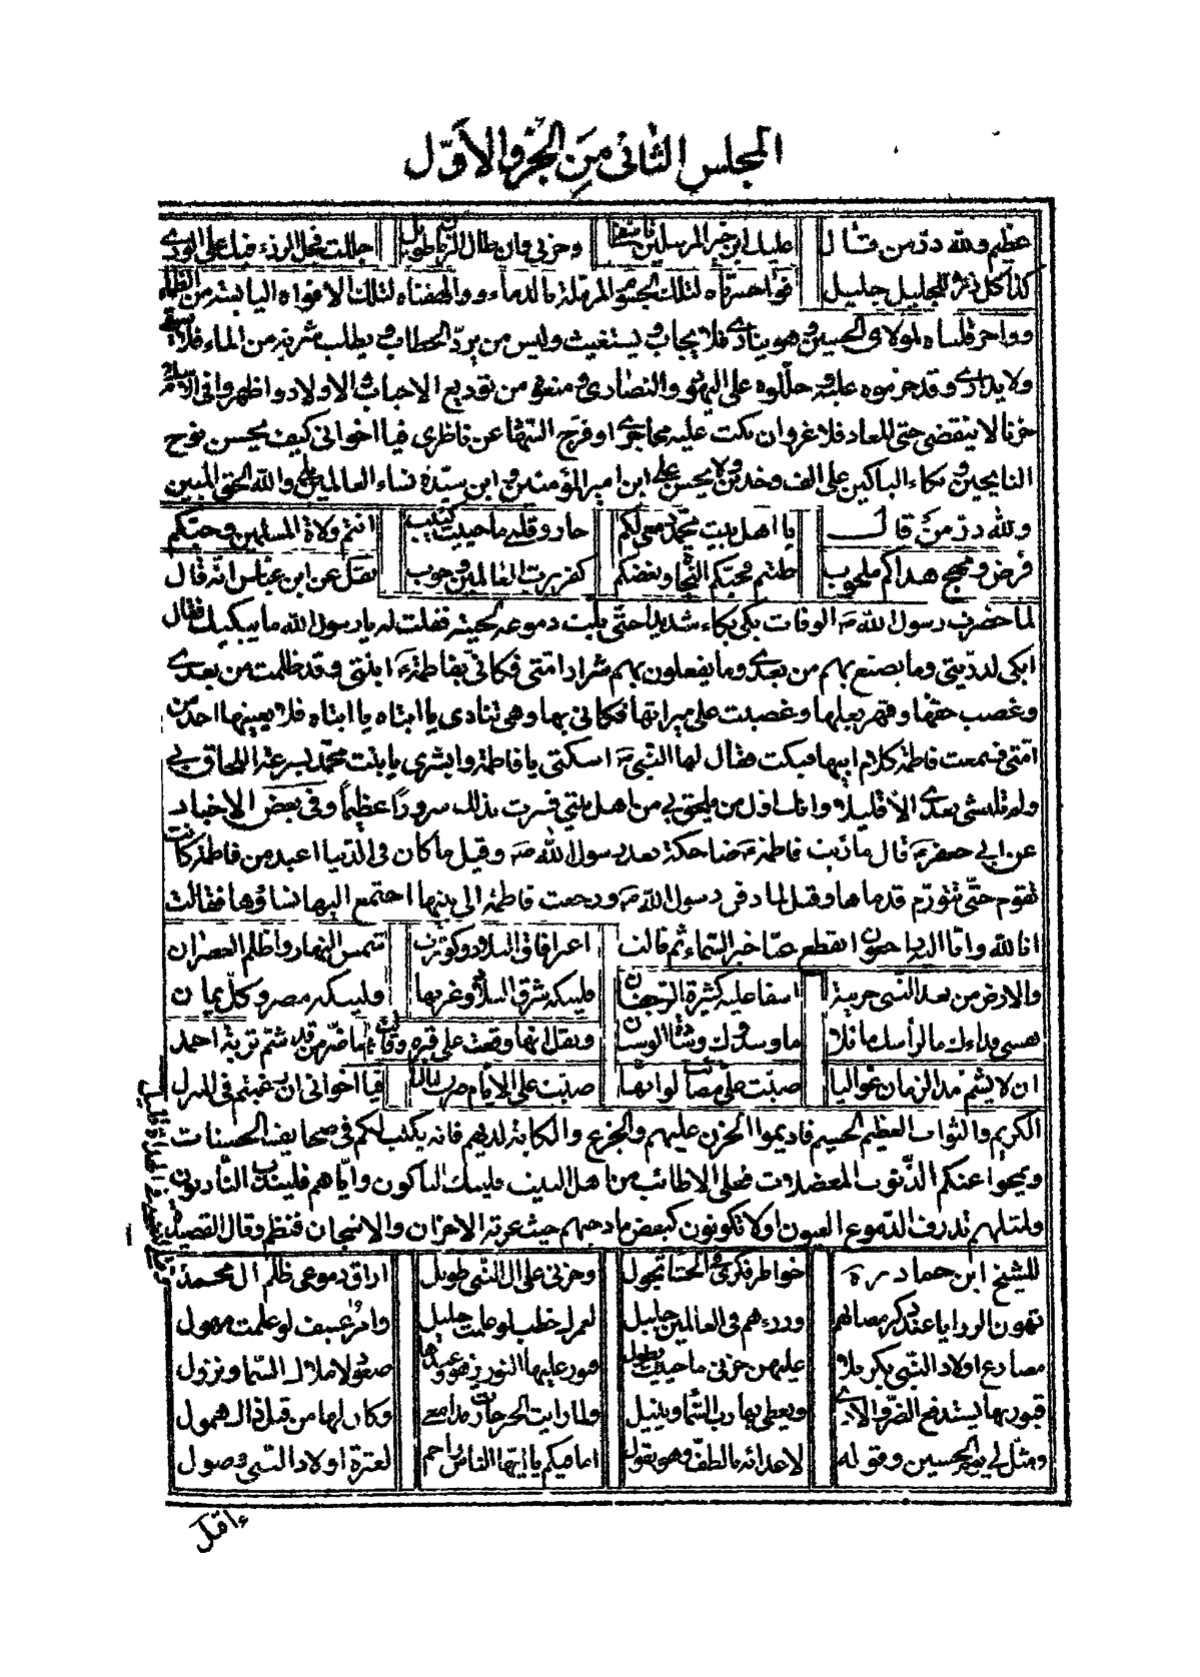 المجلس الثانى من الجزو الاول
عظيم ولله در من قال عليك ابن خير المرسلين تاسفى وحزنى وان طال الزمان طويل جللت فجل الرزء فيك على الورى
كذا كل رزء للجليل جليل فواحسرتاه لتلك الجسوم المرملة بالدماء ووالهفتاه لتلك الافواه اليابسة من الظماء
وواحرقلباه لمولاى الحسين وهو ينادى فلا يجاب ويستغيث وليس من يرد الخطاب ويطلب شربة من الماء فلا يسقى
ولا يدارى وقد حرموه عليه وحللوه على اليهود والنصارى ومنعوه من توديع الاحباب والاولاد واظهروا فى
حزنا لا ينقضى حتى المعاد فلا غرو ان بكت عليه محاجرى او قرح البكاء ناظرى فيا اخوانى كيف يحسن نوح
النايحين وبكاء الباكين على الف وخدين ولا يحسن على ابن امير المؤمنين وابن سيدة نساء العالمين بلى والله الحق المبين
ولله در من قال يا اهل بيت محمد دمعى لكم جار وقلبى ما حييت كئيب انتم ولاة المسلمين وحبكم
فرض ونهج هداكم ملحوب طبتم فحبكم النجاة وبغضكم كفر برب العالمين وحوب نقل عن ابن عباس انه قال
لما حضرت رسول الله ص الوفات بكى بكاء شديدا حتى بلت دموعه لحيته فقلت له يا رسول الله ما يبكيك فقال
ابكى لذريتى وما يصنع بهم من بعدى وما يفعلون بهم شرار امتى فكانى بفاطمة ابنتى وقد ظلمت من بعدى
وغصب حقها وقهر بعلها وغصبت على ميراثها فكانى بها وهى تنادى يا ابتاه يا ابتاه فلا يعينها احد من
امتى فسمعت فاطمة كلام ابيها فبكت فقال لها النبى ص اسكتى يا فاطمة وابشرى يا بنت محمد بسرعة اللحاق بى
ولم تلبثى بعدى الا قليلا وانك اول من يلحق بى من اهل بيتى فسرت بذلك سرورا عظيما وفى بعض الاخبار
عن ابى جعفر ع قال ما رئيت فاطمة ع ضاحكة بعد رسول الله ص وقيل ما كان فى الدنيا اعبد من فاطمة كانت
تقوم حتى تتورم قدماها وقيل لما دفن رسول الله ص ورجعت فاطمة الى بيتها اجتمع اليها نساؤها فقالت
انا لله وانا اليه راجعون انقطع عنا خبر السماء ثم قالت اغبر افاق البلاد وكورت شمس النهار واظلم العصران
والارض من بعد النبى حزينة اسفا عليه كثيرة الرجفان فليبكه شرق البلاد وغربها وليبكه مصر وكل يمان
نفسى فداءك ما لرأسك مائلا ما وسدوك وسادة الوسنان ونقل انها وقفت على قبره وقالت ماضر من قد شم تربة احمد
ان لا يشم مدا الزمان غواليا صبت على مصائب لو انها صبت على الايام صرن لياليا فيا اخوانى ان رغبتم فى المنزل
الكريم والثواب العظيم الجسيم فاديموا الحزن عليهم والجزع والكابة لديهم فانه يكتب لكم فى صحايفنا الحسنات
ويمحوا عنكم الذنوب المعضلات فعلى الاطائب من اهل البيت فليبك الباكون واياهم فليندب النادبون
ولمثلهم تذرف الدموع العيون اولا تكونون كبعض مادحيهم حيث عرته الاحزان والاشجان فنظم وقال القصيدة
للشيخ ابن حماد ره خواطر فكرى فى الحشا تجول وحزنى على ال النبى طويل اراق دموعى ظلم ال محمد
تهون الرزايا عند ذكر مصابهم ورزءهم فى العالمين جليل لعمرك خطب لو علمت جليل وامر عنيف لو علمت مهول
مصارع اولاد النبى بكربلا عليهن حزنى ما حييت يطول قبور عليها النور يزهو وعندها صعود لاملاك السما ونزول
قبور بها يستدفع الضر والاذى ويعطى بها رب السما وينيل ولما رايت الحير حارت مدامعى وكان لها من قبل ذاك همول
ومثل لى يوم الحسين وقوله لاعدائه بالطف وهو يقول اما فيكم يا ايها الناس راحم لعترة اولاد النبى وصول
اقل